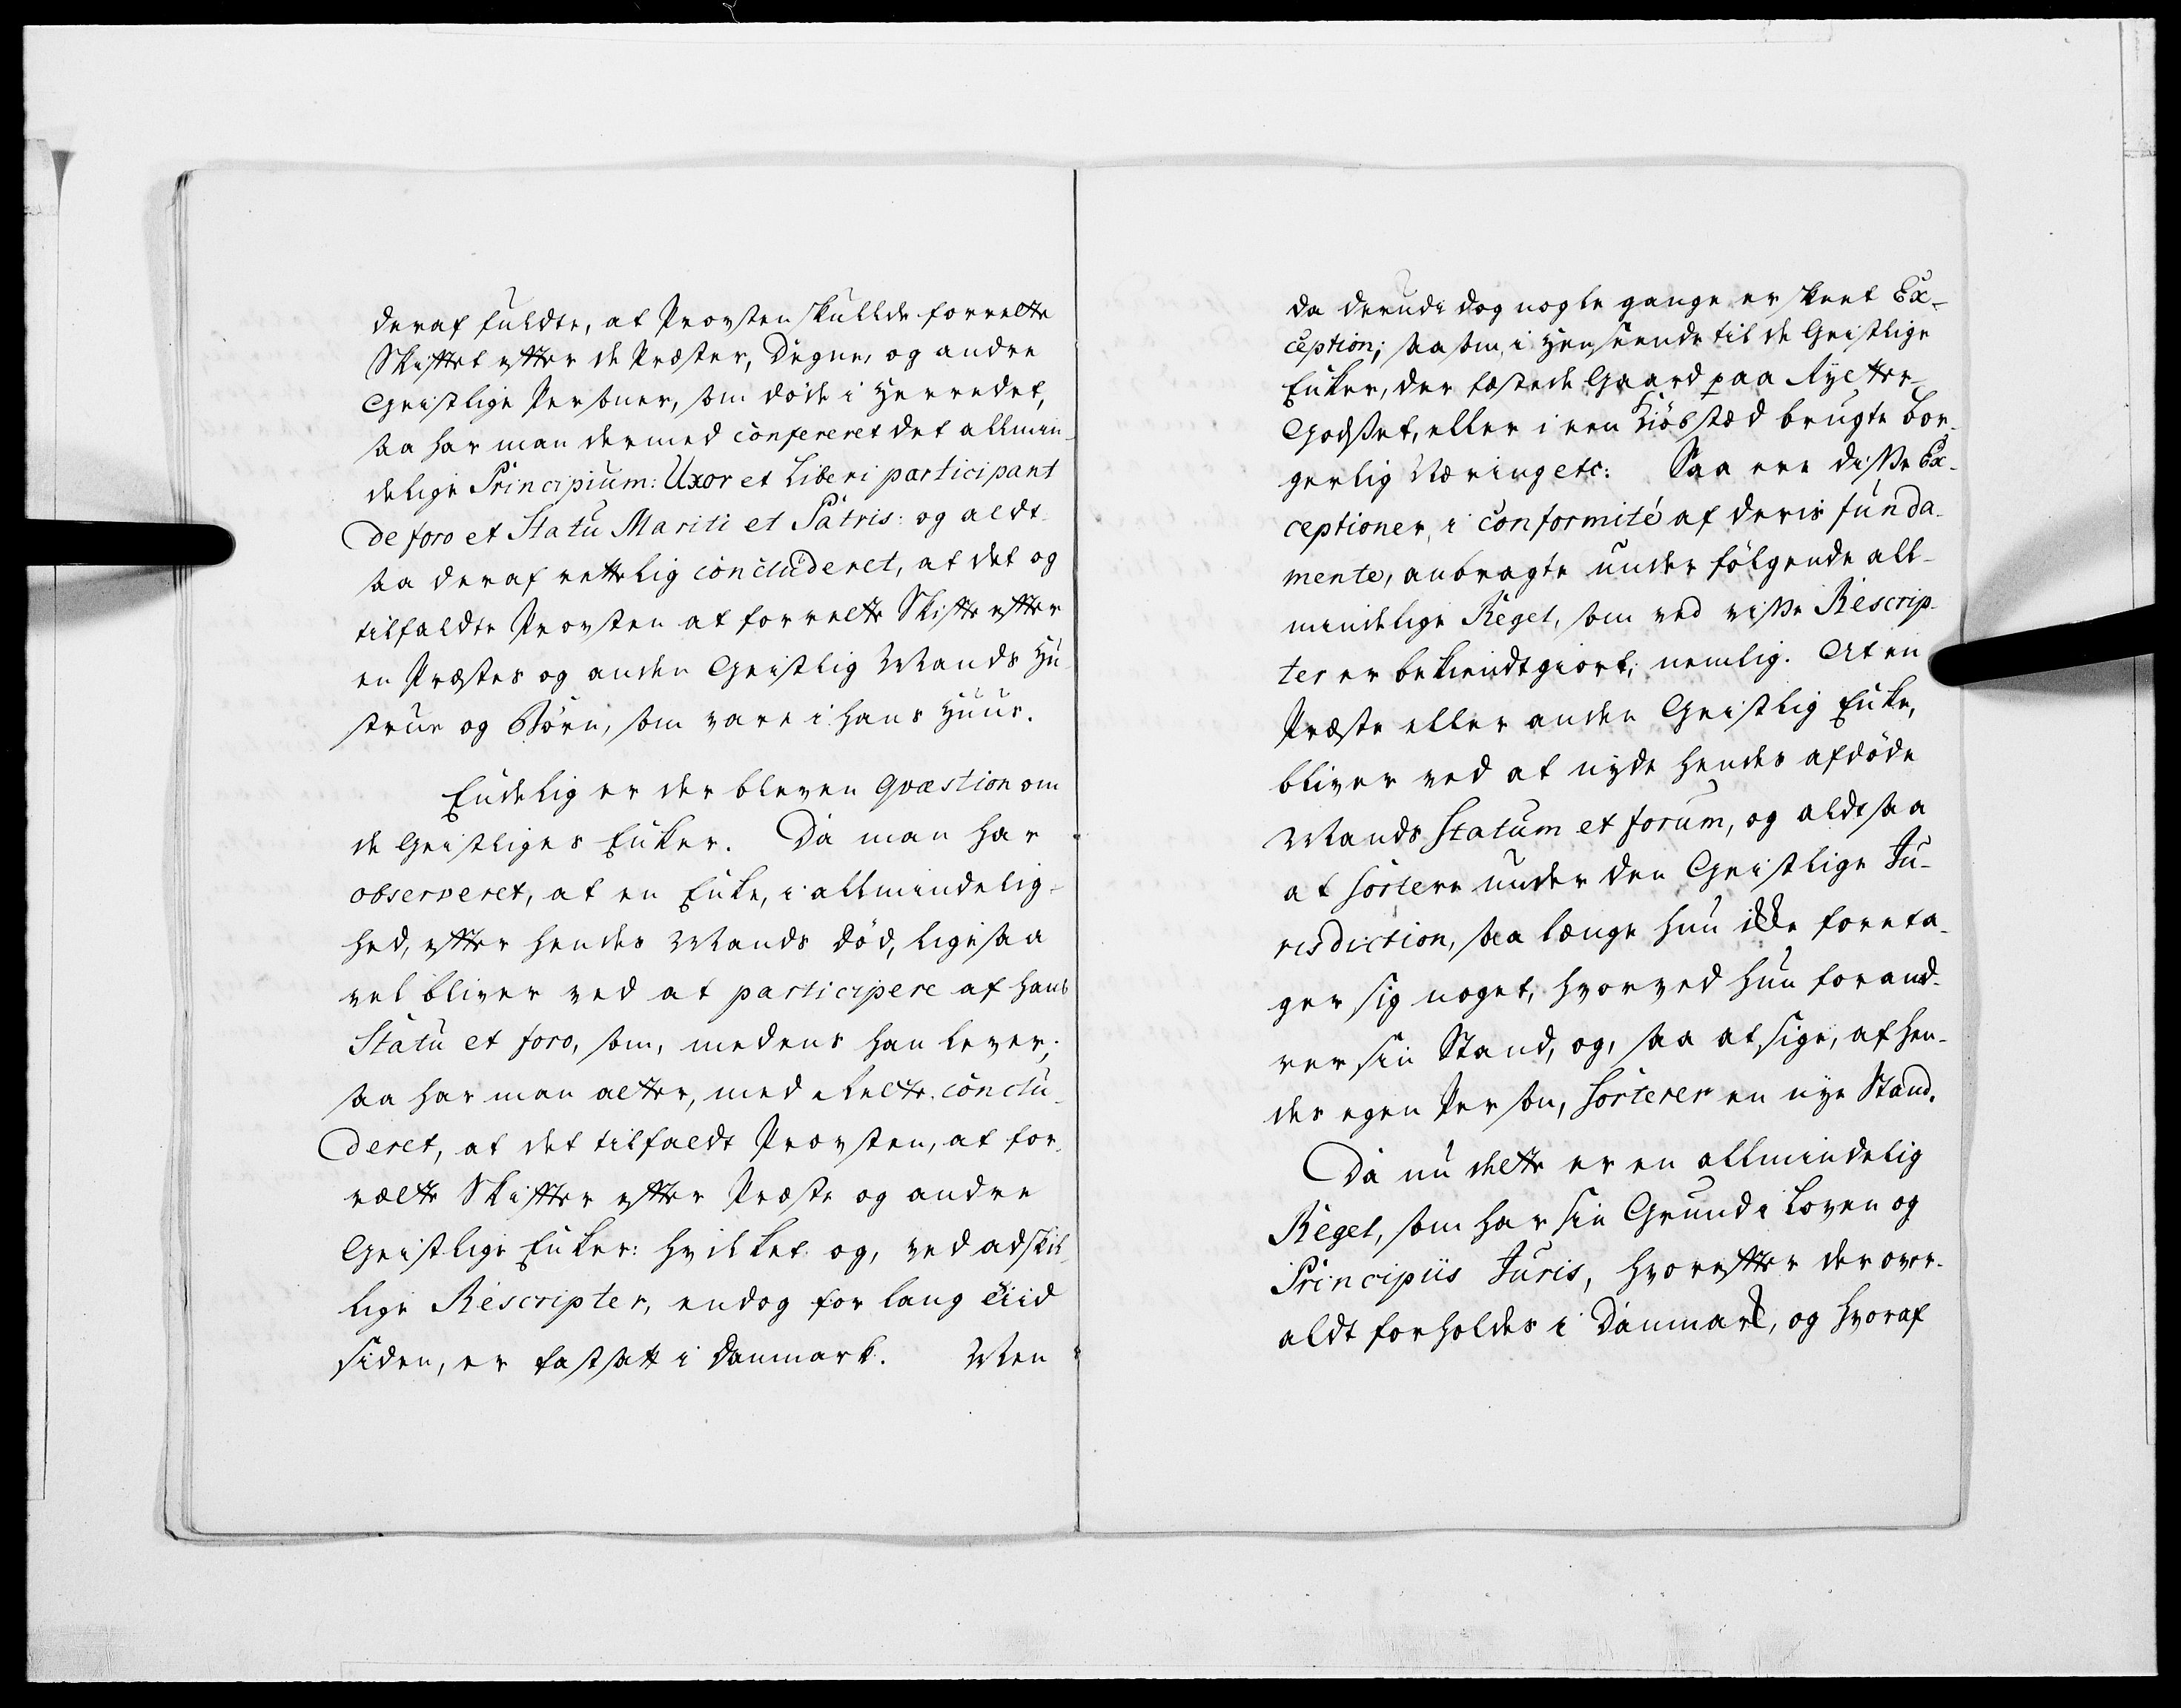 deraf fuldte, at Provsten skullde forrette
Skiftet efter de Præster, Degne, og andre
Geistlige Personer, som døde i Herredet,
saa har man dermed confereret det allmin-
delige Principium: Uxor et Liberi participant
de foro et Statu Mariti et Patris: og aldt-
saa deraf rettelig concluderet, at det og
tilfaldte Provsten at forrette Skifte efter
en Præstes og anden Geistlig Mands Hu-
strue og Börn, som vare i hans Huus.
Endelig er der bleven Qvæstion om
de Geistliges Enker. Da man har
observeret, at en Enke, i allmindelig-
hed, efter hendes Mands Död, ligesaa
vel bliver ved at participere af hans
Statu et foro, som, medens han lever;
saa har man atter, med Rette conclu-
deret, at det tilfaldt Provsten, at for-
rætte Skifter efter Præste og andre
Geistlige Enker: hvilket og, ved adskil-
lige Rescripter, endog for lang Tiid
siden, er fastsatt i Danmark. Men
da derudi dog nogle gange er skeet Ex-
ception; saasom, i Henseende til de Geistlige
Enker, der fæstede Gaard paa Rytter-
Godset, eller i een Kiöbstæd brugte bor-
gerlig Næring etc: Saa ere disse Ex-
ceptioner, i conformité af deris funda-
mente, anbragte under fölgende all-
mindelige Regel, som ved visse Rescrip-
ter er bekiendtgiort; nemlig. At en
Præste eller anden Geistlig Enke,
bliver ved at nyde hendes afdöde
Mands Statum et forum, og aldtsaa
at sortere under den Geistlige Ju-
risdiction, saa længe hun ikke foreta-
ger sig noget, hvorved hun forand-
rer sin Stand, og, saa at sige, af hen-
des egen Person, sorterer en nye Stand.
Da nu dette er en allmindelig
Regel, som har sin Grund i Loven og
Principiis Juris, hvorefter der over-
aldt forholdes i Danmark, og hvoraf